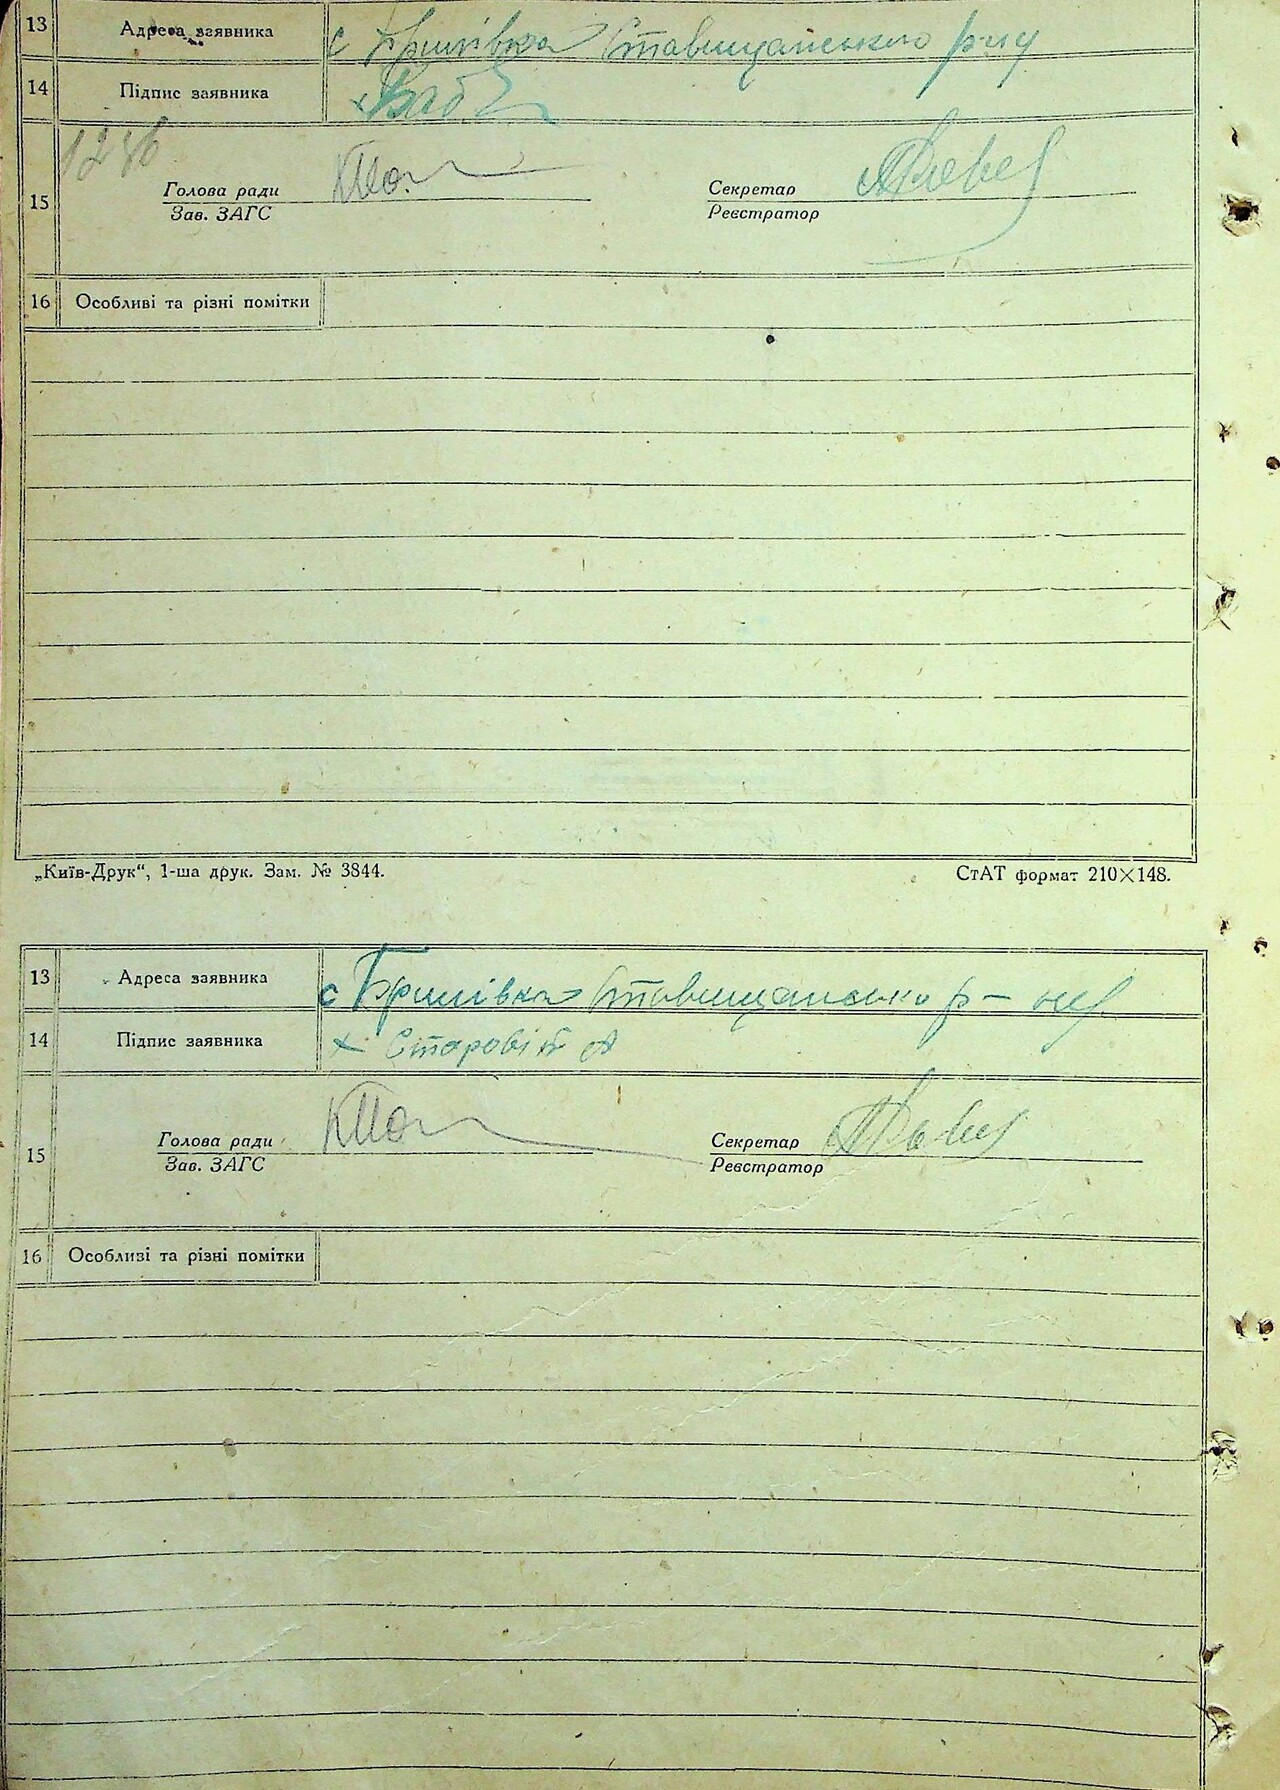 13 Адреса заявника с Бришівка Ставищанського р-ну
14 Підпис заявника х
15 Голова ради Секретар
Зав. ЗАГС Реєстратор
16 Особливі та різні помітки
„Київ-Друк“, 1-ша друк. Зам. № 3844. СтАТ формат 210×148.
13 Адреса заявника с Бришівка Ставищанського р-ну
14 Підпис заявника х Старовіт А
15 Голова ради Секретар
Зав. ЗАГС Реєстратор
16 Особливі та різні помітки